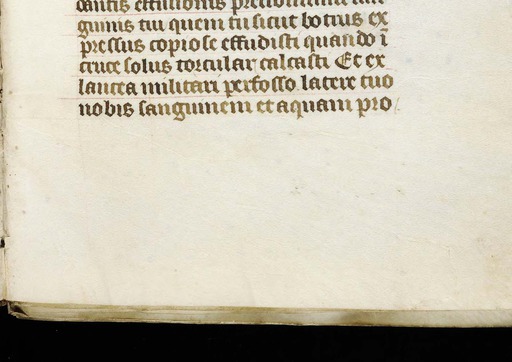 dantis effusionis preciosissimi san
guinis tui quem tu sicut botrus ex
pressus copiose effudisti quando ī
cruce solus torcular calcasti Et ex
lancea militari perfosso latere tuo
nobis sanguinem et aquam pro